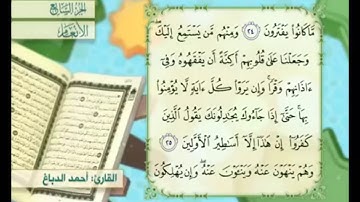 الجزء السابع
الأنعام
مَّا كَانُوا۟ يَفْتَرُونَ ٢٤ وَمِنْهُم مَّن يَسْتَمِعُ إِلَيْكَ ۖ
وَجَعَلْنَا عَلَىٰ قُلُوبِهِمْ أَكِنَّةً أَن يَفْقَهُوهُ وَفِىٓ
ءَاذَانِهِمْ وَقْرًا ۚ وَإِن يَرَوْا۟ كُلَّ ءَايَةٍ لَّا يُؤْمِنُوا۟
بِهَا ۚ حَتَّىٰٓ إِذَا جَآءُوكَ يُجَٰدِلُونَكَ يَقُولُ ٱلَّذِينَ
كَفَرُوٓا۟ إِنْ هَٰذَآ إِلَّآ أَسَٰطِيرُ ٱلْأَوَّلِينَ ٢٥
وَهُمْ يَنْهَوْنَ عَنْهُ وَيَنْـَٔوْنَ عَنْهُ ۖ وَإِن يُهْلِكُونَ
القارئ: أحمد الدباغ